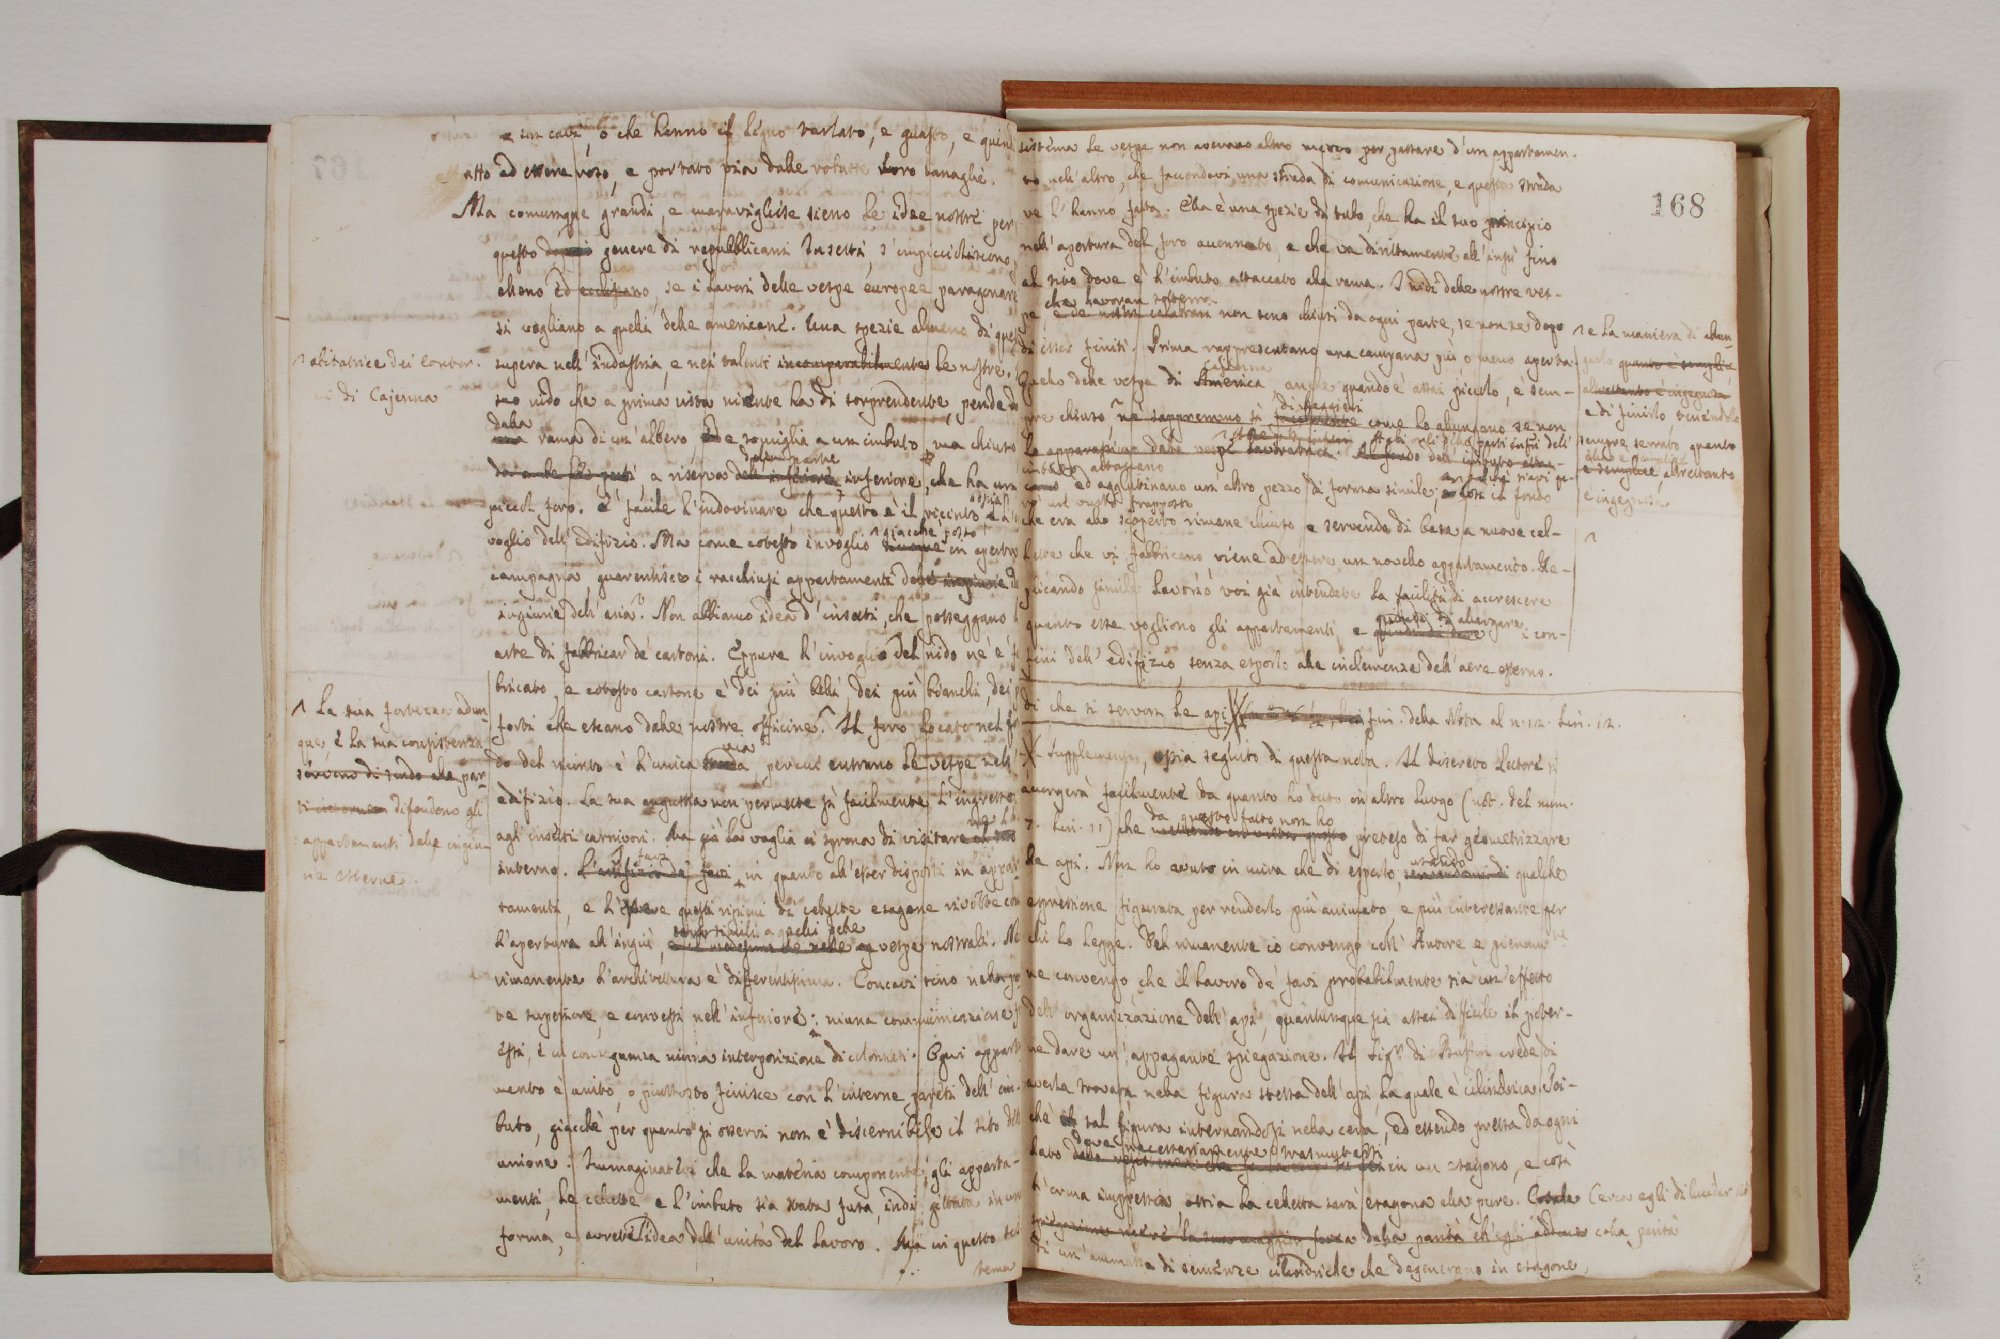 o che hanno il legno tarlato, e guasto, e quin
atto ad essere roso, e portato via dalle robuste loro tanaglie.
Ma comunque grandi, e maravigliose sieno le idee nostre per
questo genere di repubblicani Insetti, s'impiccioliscono,
almeno se i lavori delle vespe europee paragonare
si vogliano a quelli delle americane. Una spezie almeno di que
^ abitatrice dei contor-
ni di Cajenna
supera nell'industria, e nei talenti incomparabilmente le nostre.
suo nido che a prima vista niente ha di sorprendente, pende
dalla
rama di un'albero e somiglia a un imbuto, ma chiuso
a riserva dell' inferiore, che ha un
piccol foro. È facile l'indovinare che questo è il ricinto
voglio dell'edifizio. Ma come cotesto invoglio giacchè posto in aperta
campagna guarentisce i racchiusi appartamenti dalle
ingiurie dell'aria? Non abbiamo idea d'insetti, che posseggano
arte di fabbricar de' cartoni. Eppure l'invoglio del nido ne è f
bricato, e cotesto cartone è dei più belli, dei più bianchi, dei
forti che escano dalle nostre officine. Il foro locato nel fo
^ La sua fortezza adun-
que, e la sua consistenza
difendono gli
appartamenti dalle ingiu-
rie esterne.
do del ricinto è l'unica via per cui entrano le vespe nell'
edifizio. La sua angustia non permette sì facilmente l'ingresso
agl'insetti carnivori. Ma già la voglia ci sprona di visitare
interno. in quanto all'esser disposti in appar
tamenti, e l'essere questi ripieni di cellette esagone rivolte con
l'apertura all'ingiù, sono simili a quelli delle vespe nostrali. Nel
rimanente l'architettura è differentissima. Concavi sono nella par
te superiore, e convessi nell'inferiore: niuna communicazione
essi, e in conseguenza niuna interposizione di colonnette. Ogni appart
mento è unito, o piuttosto finisce con l'interne pareti dell'im-
buto, giacchè per quanto si osservi non è discernibile il sito dell
unione. Immaginatevi che la materia componente gli apparta-
menti, le cellette e l'imbuto sia stata fusa, indi gittata in un
forma, e avrete l'idea dell'unità del lavoro. Ma in questo sis
tema
168
sistema le vespe non avevano altro mezzo per passare d'un appartamen-
to nell'altro, che facendovi una strada di comunicazione, e questa strada
ve l'hanno fatta. Ella è una spezie di tubo, che ha il suo principio
nell'apertura del foro accennato, e che va dirittamente all'insù fino
al sito dove è l'imbuto attaccato alla rama. I nidi delle nostre ves-
pe che lavoran sotterra non sono chiusi da ogni parte, se non se dopo
di esser finiti. Prima rappresentano una campana più o meno aperta.
Cajenna
Quello delle vespe di America, anche quando è assai piccolo, è sem-
pre chiuso, nè sapremmo sì di leggieri come lo allungano se non
^ e la maniera di allun-
garlo
e di finirlo, tenendolo
sempre serrato quanto
e semplice altrettanto
è ingegnosa
imbuto attaccano
ed agglutinano un altro pezzo di forma simile, così il fondo
che era allo scoperto rimane chiuso e servendo di base a nuove cel-
lette che vi fabbricano viene ad essere un novello appartamento. Re-
plicando simile lavorio voi già intendete la facilità di accrescere
quanto esse vogliono gli appartamenti, e quindi di allargare i con-
fini dell'edifizio, senza esporlo alle inclemenze dell'aere esterno.
di che si servon le api fin. della Nota al n. 12. Lin. 12.
Supplemento, ossia seguito di questa nota. Il discreto Lettore si
accorgerà facilmente da quanto ho detto in altro luogo (not. del num.
7. Lin. 11) che da questo fatto non ho preteso di far geometrizzare
le api. Non ho avuto in mira che di esporlo, usando qualche
espressione figurata per renderlo più animato, e più interessante per
chi lo legge. Del rimanente io convengo coll'Autore e pienamte
ne convengo che il lavoro de' favi probabilmente sia un'effetto
dell'organizzazione dell'api, quantunque sia assai difficile il poter-
ne dare un'appagante spiegazione. Il Sigr. di Buffon crede di
averla trovata nella figura stessa dell'api, la quale è cilindrica. Poi-
chè tal figura internandosi nella cera, ed essendo pressa da ogni
lato deve necessariamente trasmutarsi in un esagono, e così
l'orma impressa ossia la celletta sarà esagona ella pure. Cerca egli di lucidar
colla parità
di un'ammasso di semenze cilindriche che degenerano in esagone